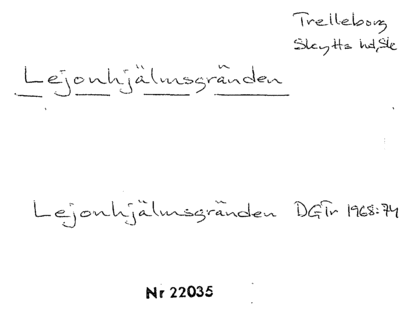 Trelleborg
Skytts hd, Sk
Lejonhjälmsgränden
Lejonhjälmsgränden DGTr 1968:74
Nr 22035